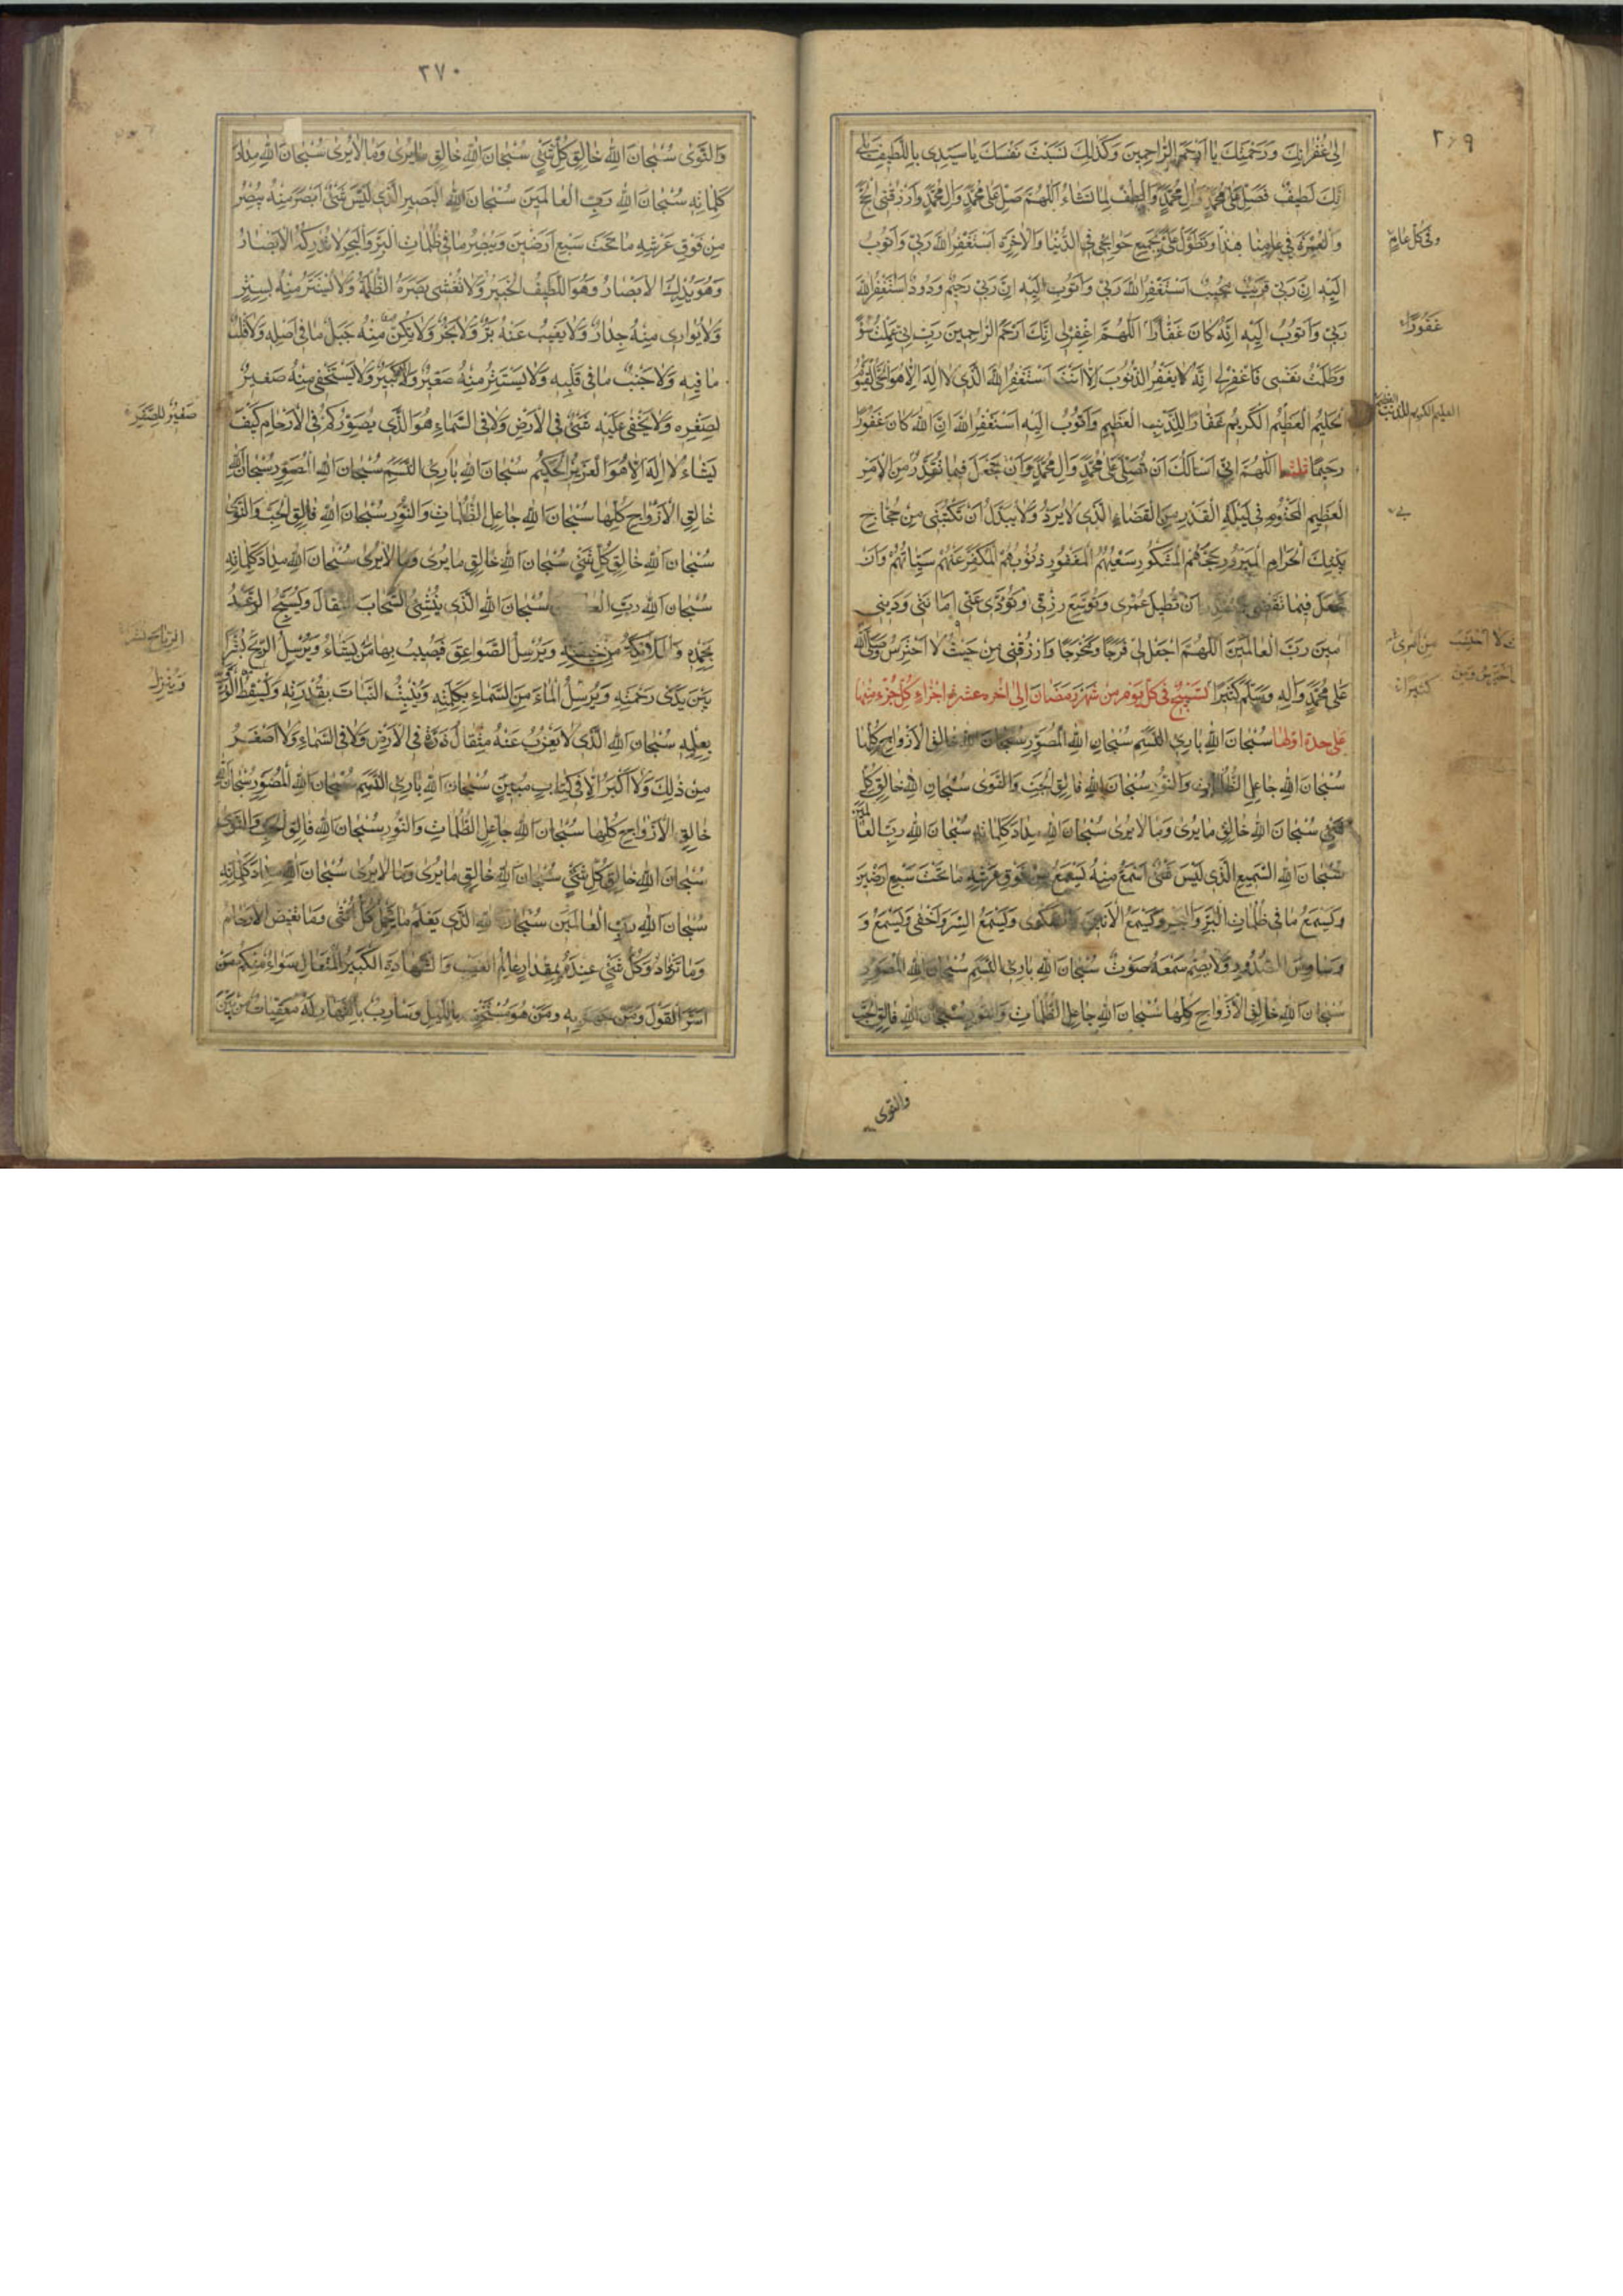 ٢٦٩
الى غفرانك ورحمتك يا ارحم الراحمين وكذلك نسبت نفسك يا سيدى باللطيف بلى
انك لطيف فصل على محمد وال محمد والطف لما تشاء اللهم صل على محمد وال محمد وارزقنى الحج
والعمرة فى عامنا هذا وتطول على بجميع حوائجى فى الدنيا والاخرة استغفر الله ربى واتوب
وفى كل عام
اليه ان ربى قريب مجيب استغفر الله ربى واتوب اليه ان ربى رحيم ودود استغفر الله
ربى واتوب اليه انه كان غفارا اللهم اغفر لى انك ارحم الراحمين رب انى عملت سوء
غفورا
وظلمت نفسى فاغفر لى انه لا يغفر الذنوب الا انت استغفر الله الذى لا اله الا هو الحى القيوم
الحليم العظيم الكريم غفارا للذنب العظيم واتوب اليه استغفر الله ان الله كان غفورا
رحيما ثلثا اللهم انى اسالك ان تصلى على محمد وال محمد وان تجعل فيما تقدر من الامر
العظيم المحتوم فى ليلة القدر من القضاء الذى لا يرد ولا يبدل ان تكتبنى من حجاج
بيتك الحرام المبرور حجهم المشكور سعيهم المغفور ذنوبهم المكفر عنهم سيئاتهم وان
تجعل فيما تقضى وتقدر ان تطيل عمرى وتوسع رزقى وتؤدى عنى امانتى ودينى
امين رب العالمين اللهم اجعل لى فرجا ومخرجا وارزقنى من حيث لا احترس وصلى الله
على محمد واله وسلم كثيرا تسبيح فى كل يوم من شهر رمضان الى اخره عشرة اجزاء كل جزء منها
على حدة اولها سبحان الله بارئ النسم سبحان الله المصور سبحان الله خالق الازواج كلها
سبحان الله جاعل الظلمات والنور سبحان الله فالق الحب والنوى سبحان الله خالق كل
شىء سبحان الله خالق ما يرى وما لا يرى سبحان الله مداد كلماته سبحان الله رب العالمين
سبحان الله السميع الذى ليس شىء اسمع منه يسمع من فوق عرشه ما تحت سبع ارضين
ويسمع ما فى ظلمات البر والبحر ويسمع الانين والشكوى ويسمع السر واخفى ويسمع و
وساوس الصدور ولا يصم سمعه صوت سبحان الله بارئ النسم سبحان الله المصور
سبحان الله خالق الازواج كلها سبحان الله جاعل الظلمات والنور سبحان الله فالق الحب
والنوى
٣٧٠
والنوى سبحان الله خالق كل شىء سبحان الله خالق ما يرى وما لا يرى سبحان الله مداد
كلماته سبحان الله رب العالمين سبحان الله البصير الذى ليس شىء ابصر منه يبصر
من فوق عرشه ما تحت سبع ارضين ويبصر ما فى ظلمات البر والبحر لا تدركه الابصار
وهو يدرك الابصار وهو اللطيف الخبير ولا تغشى بصره الظلمة ولا يستتر منه بستر
ولا يوارى منه جدار ولا يغيب عنه بر ولا بحر ولا يكن منه جبل ما فى اصله ولا قلب
ما فيه ولا جنب ما فى قلبه ولا يستتر منه صغير ولا كبير ولا يستخفى منه صغير
لصغره ولا يخفى عليه شىء فى الارض ولا فى السماء هو الذى يصوركم فى الارحام كيف
يشاء لا اله الا هو العزيز الحكيم سبحان الله بارئ النسم سبحان الله المصور سبحان الله
خالق الازواج كلها سبحان الله جاعل الظلمات والنور سبحان الله فالق الحب والنوى
سبحان الله خالق كل شىء سبحان الله خالق ما يرى وما لا يرى سبحان الله مداد كلماته
سبحان الله رب العالمين سبحان الله الذى ينشئ السحاب الثقال ويسبح الرعد
بحمده والملائكة من خيفته ويرسل الصواعق فيصيب بها من يشاء ويرسل الريح بشرا
بين يدى رحمته ويرسل الماء من السماء بكلمته وينبت النبات بقدرته ويسقط الورق
وينزل
بعلمه سبحان الله الذى لا يعزب عنه مثقال ذرة فى الارض ولا فى السماء ولا اصغر
من ذلك ولا اكبر الا فى كتاب مبين سبحان الله بارئ النسم سبحان الله المصور سبحان الله
خالق الازواج كلها سبحان الله جاعل الظلمات والنور سبحان الله فالق الحب والنوى
سبحان الله خالق كل شىء سبحان الله خالق ما يرى وما لا يرى سبحان الله مداد كلماته
سبحان الله رب العالمين سبحان الله الذى يعلم ما تحمل كل انثى وما تغيض الارحام
وما تزداد وكل شىء عنده بمقدار عالم الغيب والشهادة الكبير المتعال سواء منكم من
اسر القول ومن جهر به ومن هو مستخف بالليل وسارب بالنهار له معقبات من بين